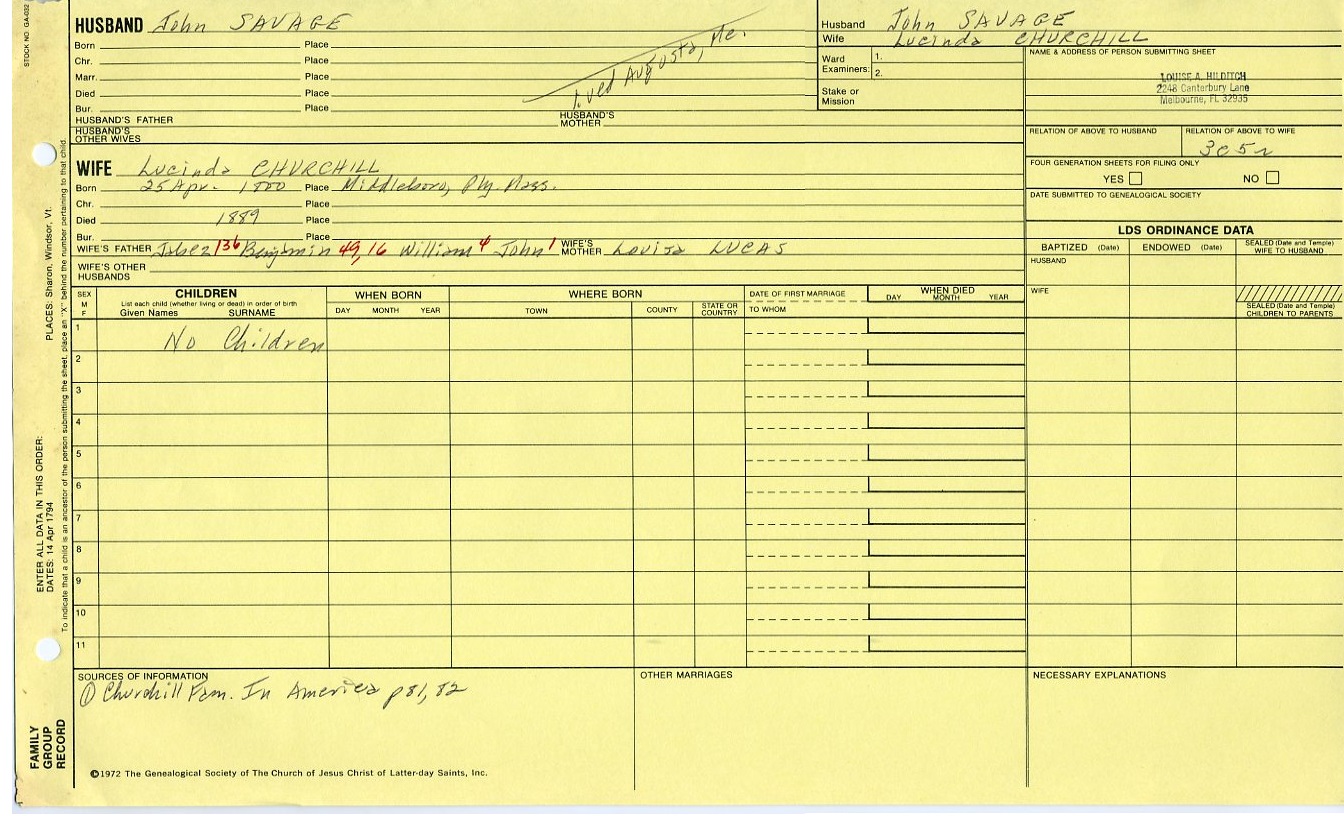 STOCK NO. GA-032
HUSBAND John SAVAGE
Born Place
Chr. Place
Marr. Place
Died Place
Bur. Place
lived Augusta, Me.
HUSBAND'S FATHER
HUSBAND'S MOTHER
HUSBAND'S OTHER WIVES
Husband John SAVAGE
Wife Lucinda CHURCHILL
Ward Examiners: 1.
2.
Stake or Mission
NAME & ADDRESS OF PERSON SUBMITTING SHEET
LOUISE A. HILDITCH
2248 Canterbury Lane
Melbourne, FL 32935
RELATION OF ABOVE TO HUSBAND
RELATION OF ABOVE TO WIFE
3c5r
FOUR GENERATION SHEETS FOR FILING ONLY
YES NO
DATE SUBMITTED TO GENEALOGICAL SOCIETY
WIFE Lucinda CHURCHILL
Born 25 Apr. 1800 Place Middleboro, Ply. Mass.
Chr. Place
Died 1889 Place
Bur. Place
WIFE'S FATHER Jabez 136 Benjamin 49, 16 William 4 John 1 WIFE'S MOTHER Louisa LUCAS
WIFE'S OTHER HUSBANDS
LDS ORDINANCE DATA
BAPTIZED (Date) ENDOWED (Date) SEALED (Date and Temple) WIFE TO HUSBAND
HUSBAND
WIFE
SEALED (Date and Temple) CHILDREN TO PARENTS
SEX M F
CHILDREN
List each child (whether living or dead) in order of birth
Given Names SURNAME
WHEN BORN
DAY MONTH YEAR
WHERE BORN
TOWN COUNTY STATE OR COUNTRY
DATE OF FIRST MARRIAGE
TO WHOM
WHEN DIED
DAY MONTH YEAR
1 No Children
2
3
4
5
6
7
8
9
10
11
SOURCES OF INFORMATION
① Churchill Fam. In America p81, 82
OTHER MARRIAGES
NECESSARY EXPLANATIONS
©1972 The Genealogical Society of The Church of Jesus Christ of Latter-day Saints, Inc.
FAMILY GROUP RECORD
ENTER ALL DATA IN THIS ORDER:
DATES: 14 Apr 1794
PLACES: Sharon, Windsor, Vt.
To indicate that a child is an ancestor of the person submitting the sheet, place an "X" behind the number pertaining to that child.